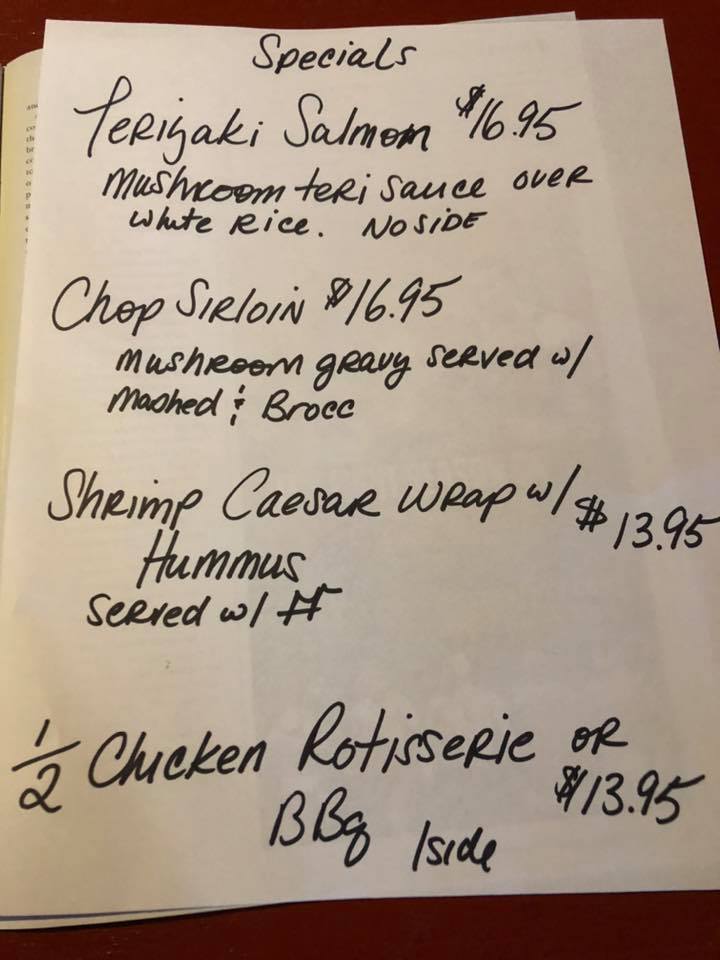 Specials
Teriyaki Salmon $16.95
Mushroom teri sauce over
white Rice. No SIDE
Chop Sirloin $16.95
Mushroom gravy served w/
Mashed & Brocc
Shrimp Caesar Wrap w/ $13.95
Hummus
Served w/ FF
1/2 Chicken Rotisserie or
BBq $13.95
1side